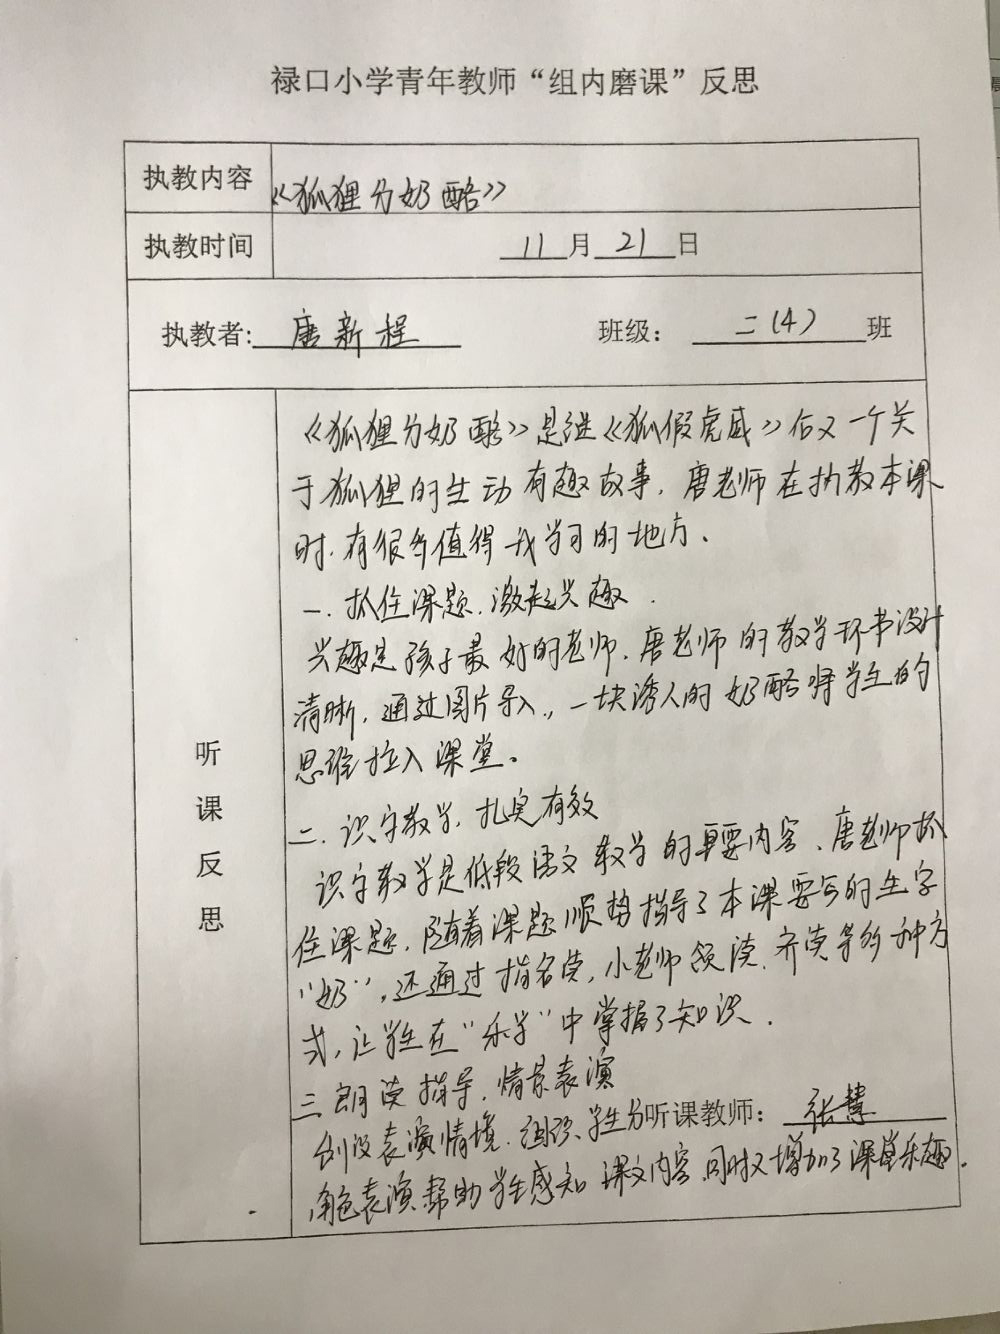 禄口小学青年教师“组内磨课”反思
执教内容 《狐狸分奶酪》
执教时间 11月21日
执教者: 唐新程 班级: 二(4)班
听课反思
《狐狸分奶酪》是继《狐假虎威》后又一个关
于狐狸的生动有趣故事,唐老师在执教本课
时,有很多值得我学习的地方、
一、抓住课题,激起兴趣.
兴趣是孩子最好的老师,唐老师的教学环节设计
清晰,通过图片导入,一块诱人的奶酪将学生的
思维拉入课堂。
二、识字教学,扎实有效
识字教学是低段语文教学的重要内容、唐老师抓
住课题,随着课题顺势指导了本课要写的生字
“奶”,还通过指名读,小老师领读、齐读等多种方
式,让学生在“乐学”中掌握了知识.
三、朗读指导,情景表演
创设表演情境、组织学生分
听课教师: 张慧
角色表演帮助学生感知课文内容,同时又增加了课堂乐趣.